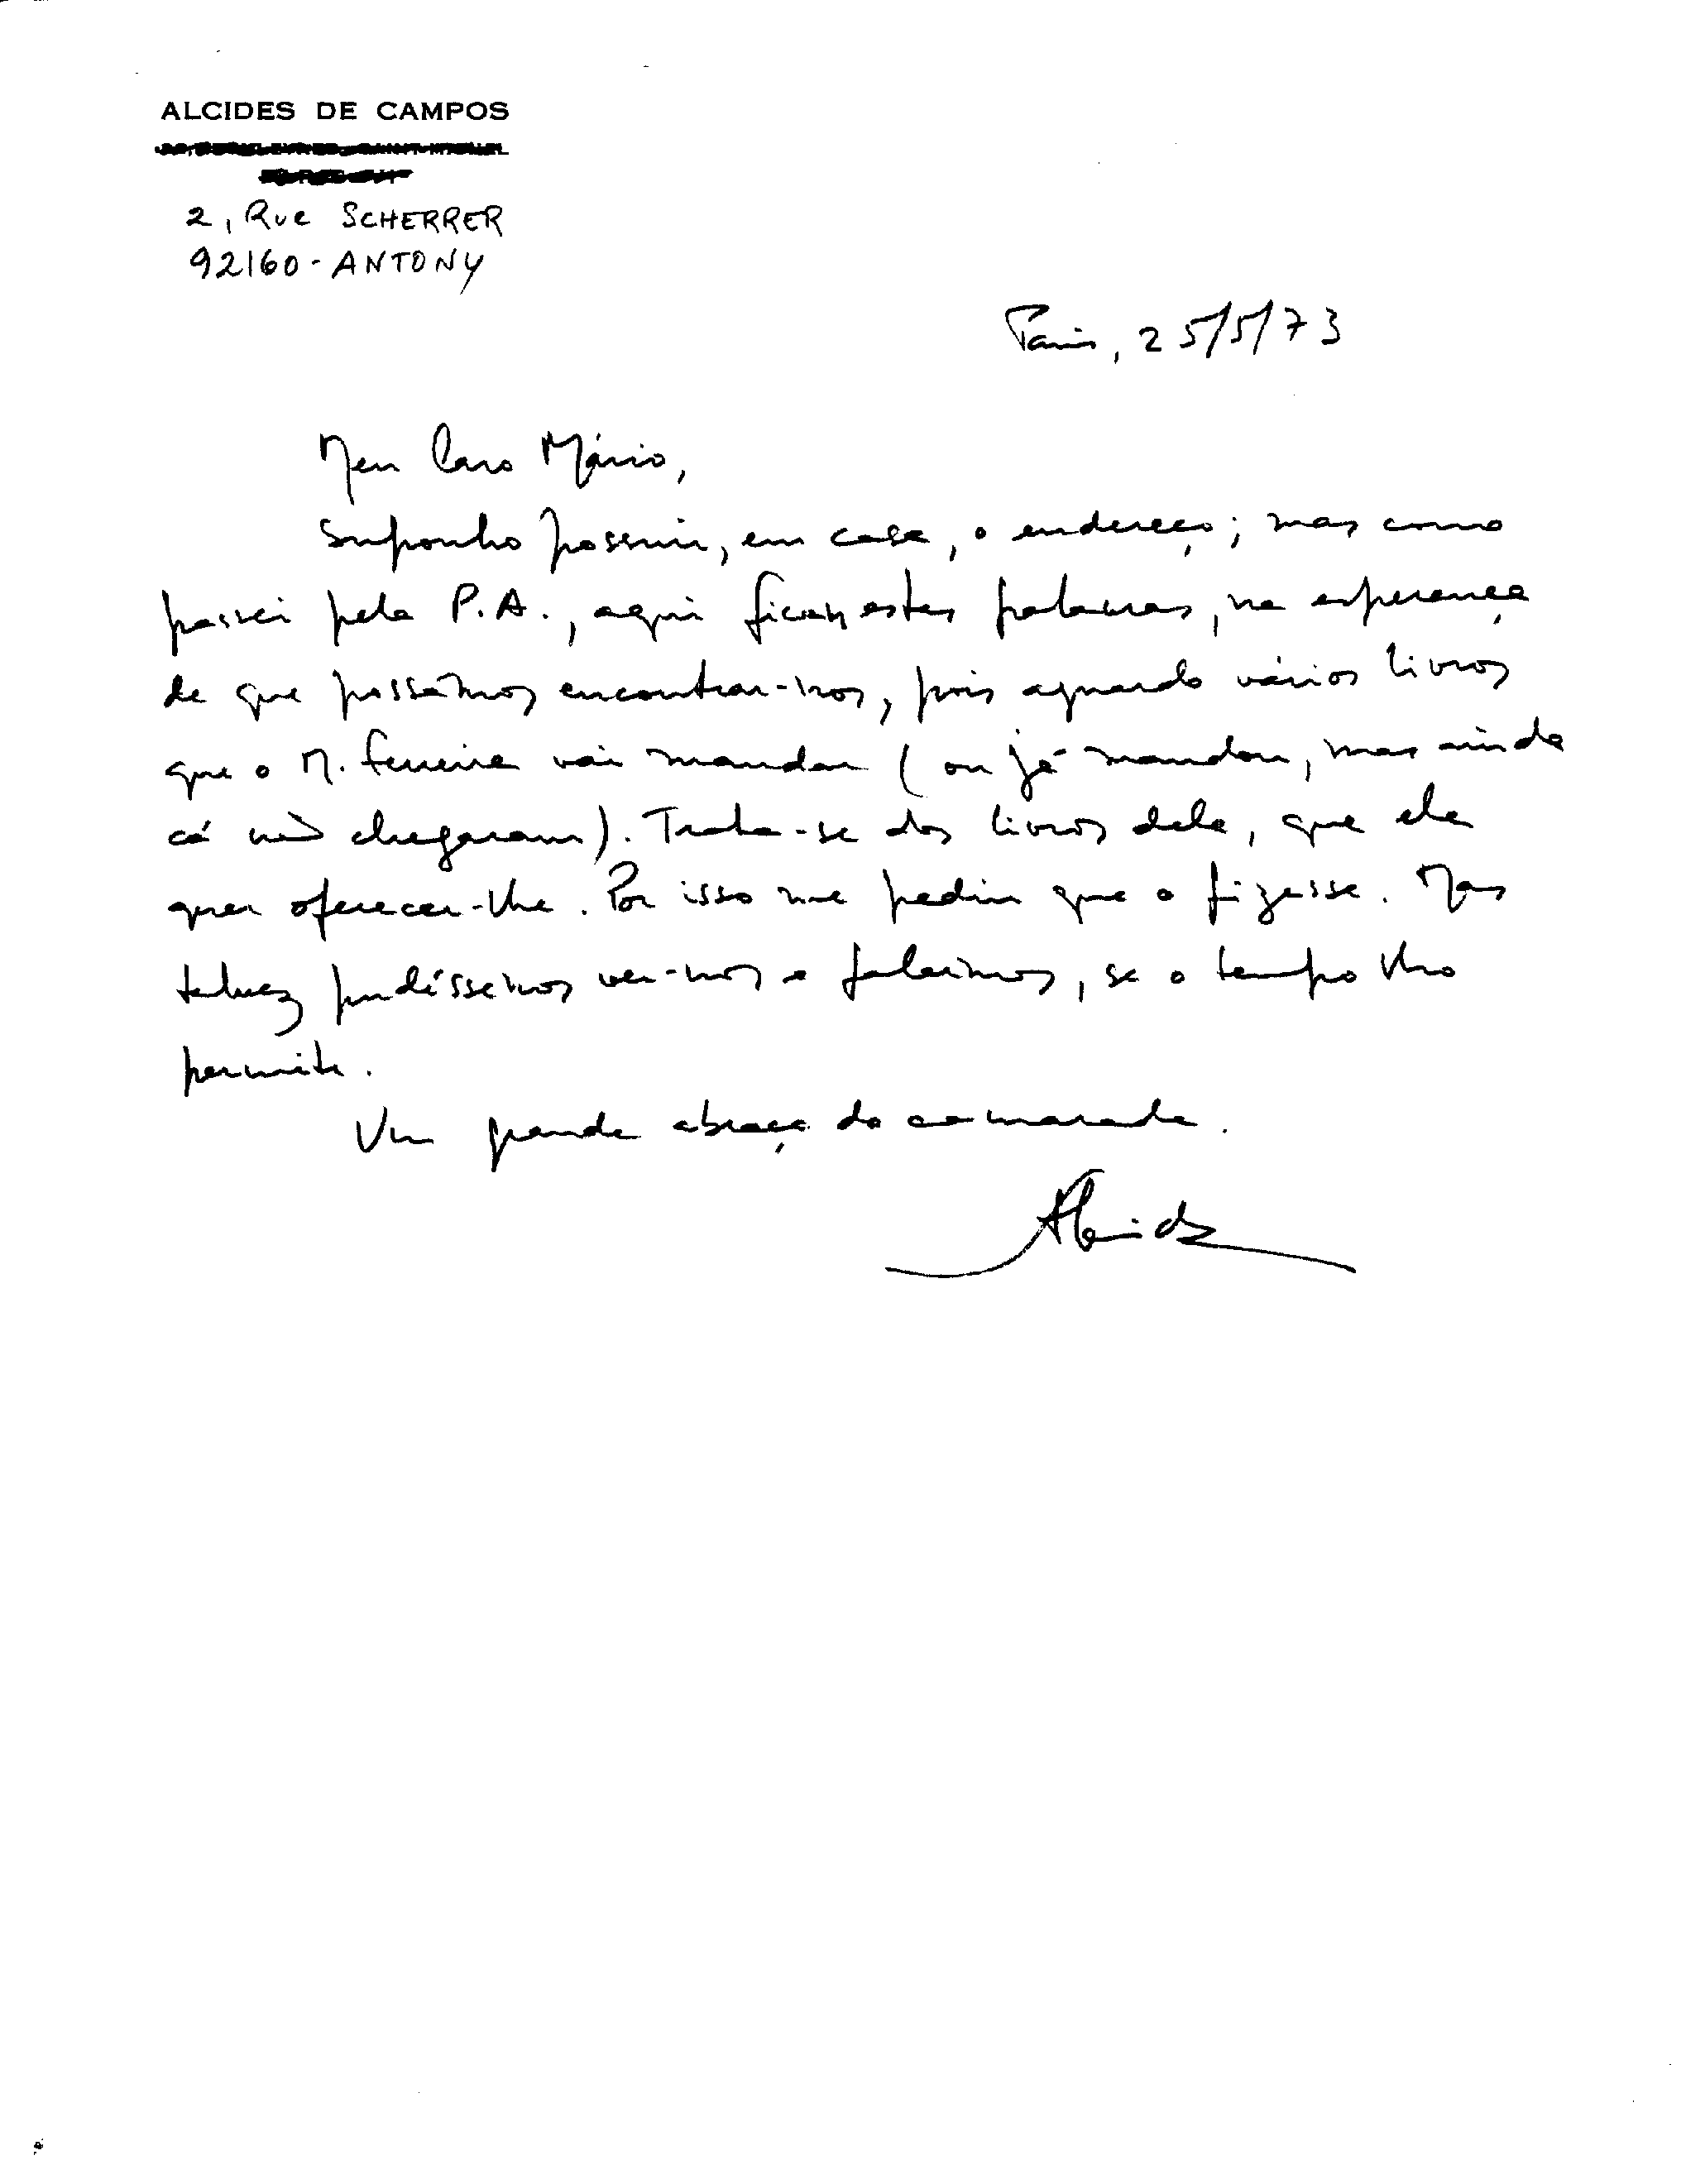 ALCIDES DE CAMPOS
2, Rue SCHERRER
92160 - ANTONY
Paris, 25/5/73
Meu Caro Mário,
Suponho possuir, em casa, o endereço; mas como
passei pela P.A., aqui ficam estas palavras, na esperança
de que possamos encontrar-nos, pois aguardo vários livros
que o M. Ferreira vai mandar (ou já mandou, mas ainda
cá não chegaram). Trata-se dos livros dele, que ele
quer oferecer-lhe. Por isso me pediu que o fizesse. Mas
talvez pudéssemos ver-nos e falarmos, se o tempo lho
permite.
Um grande abraço do camarada.
Alcides